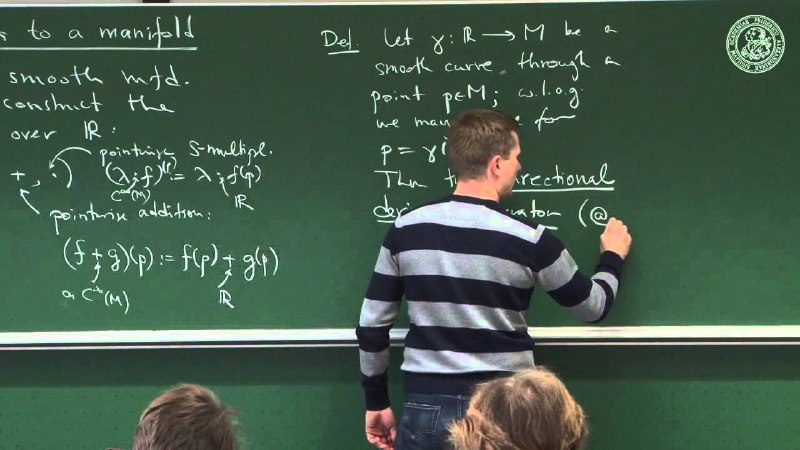 s to a manifold
smooth mfd.
construct the
over ℝ:
pointwise S-multipl.
+, ·) (λ·f)(p) := λ·f(p)
C^∞(M) ℝ
pointwise addition:
(f + g)(p) := f(p) + g(p)
on C^∞(M) ℝ
Def. Let γ: ℝ → M be a
smooth curve through a
point p∈M; w.l.o.g.
we may for
p = γ(
Then rectional
der (@